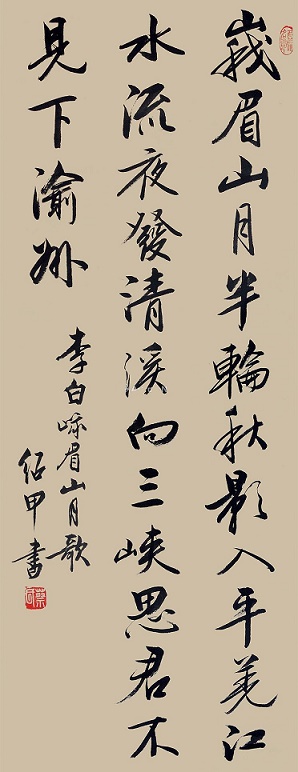 峨眉山月半輪秋影入平羌江
水流夜發清溪向三峽思君不
見下渝州
李白峨眉山月歌
紹甲書